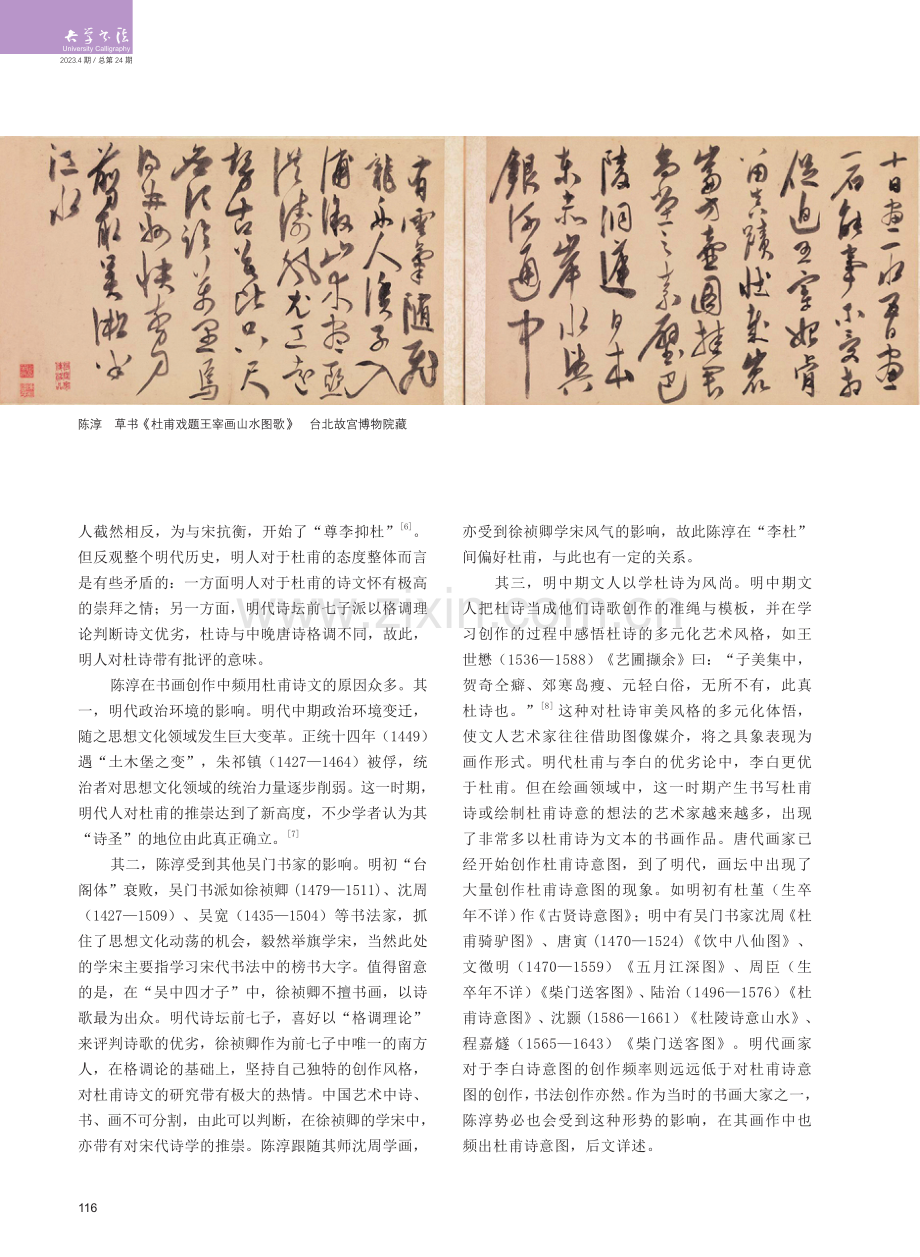 大学书法
University Calligraphy
2023.4 期 / 总第 24 期
十日畫一水五日畫
一石能事不受相
促迫王宰始肯
留真蹟壯哉崑
崙方壺圖挂君
高堂之素壁巴
陵洞庭日本
東赤岸水與
銀河通中
有雲氣隨飛
龍舟人漁子入
浦溆山木盡亞
洪濤風尤工遠
勢古莫比尺
論萬里焉
得并州快剪刀
剪取吳淞半
江水
陈淳　草书《杜甫戏题王宰画山水图歌》　台北故宫博物院藏
人截然相反，为与宋抗衡，开始了“尊李抑杜”[6]。
但反观整个明代历史，明人对于杜甫的态度整体而言
是有些矛盾的：一方面明人对于杜甫的诗文怀有极高
的崇拜之情；另一方面，明代诗坛前七子派以格调理
论判断诗文优劣，杜诗与中晚唐诗格调不同，故此，
明人对杜诗带有批评的意味。
陈淳在书画创作中频用杜甫诗文的原因众多。其
一，明代政治环境的影响。明代中期政治环境变迁，
随之思想文化领域发生巨大变革。正统十四年（1449）
遇“土木堡之变”，朱祁镇（1427—1464）被俘，统
治者对思想文化领域的统治力量逐步削弱。这一时期，
明代人对杜甫的推崇达到了新高度，不少学者认为其
“诗圣”的地位由此真正确立。[7]
其二，陈淳受到其他吴门书家的影响。明初“台
阁体”衰败，吴门书派如徐祯卿（1479—1511）、沈周
（1427—1509）、吴宽（1435—1504）等书法家，抓
住了思想文化动荡的机会，毅然举旗学宋，当然此处
的学宋主要指学习宋代书法中的榜书大字。值得留意
的是，在“吴中四才子”中，徐祯卿不擅书画，以诗
歌最为出众。明代诗坛前七子，喜好以“格调理论”
来评判诗歌的优劣，徐祯卿作为前七子中唯一的南方
人，在格调论的基础上，坚持自己独特的创作风格，
对杜甫诗文的研究带有极大的热情。中国艺术中诗、
书、画不可分割，由此可以判断，在徐祯卿的学宋中，
亦带有对宋代诗学的推崇。陈淳跟随其师沈周学画，
亦受到徐祯卿学宋风气的影响，故此陈淳在“李杜”
间偏好杜甫，与此也有一定的关系。
其三，明中期文人以学杜诗为风尚。明中期文
人把杜诗当成他们诗歌创作的准绳与模板，并在学
习创作的过程中感悟杜诗的多元化艺术风格，如王
世懋（1536—1588）《艺圃撷余》曰：“子美集中，
贺奇仝癖、郊寒岛瘦、元轻白俗，无所不有，此真
杜诗也。”[8] 这种对杜诗审美风格的多元化体悟，
使文人艺术家往往借助图像媒介，将之具象表现为
画作形式。明代杜甫与李白的优劣论中，李白更优
于杜甫。但在绘画领域中，这一时期产生书写杜甫
诗或绘制杜甫诗意的想法的艺术家越来越多，出现
了非常多以杜甫诗为文本的书画作品。唐代画家已
经开始创作杜甫诗意图，到了明代，画坛中出现了
大量创作杜甫诗意图的现象。如明初有杜堇（生卒
年不详）作《古贤诗意图》；明中有吴门书家沈周《杜
甫骑驴图》、唐寅（1470—1524）《饮中八仙图》、
文徵明（1470—1559）《五月江深图》、周臣（生
卒年不详）《柴门送客图》、陆治（1496—1576）《杜
甫诗意图》、沈颢（1586—1661）《杜陵诗意山水》、
程嘉燧（1565—1643）《柴门送客图》。明代画家
对于李白诗意图的创作频率则远远低于对杜甫诗意
图的创作，书法创作亦然。作为当时的书画大家之一，
陈淳势必也会受到这种形势的影响，在其画作中也
频出杜甫诗意图，后文详述。
www.zixin.com.cn
116